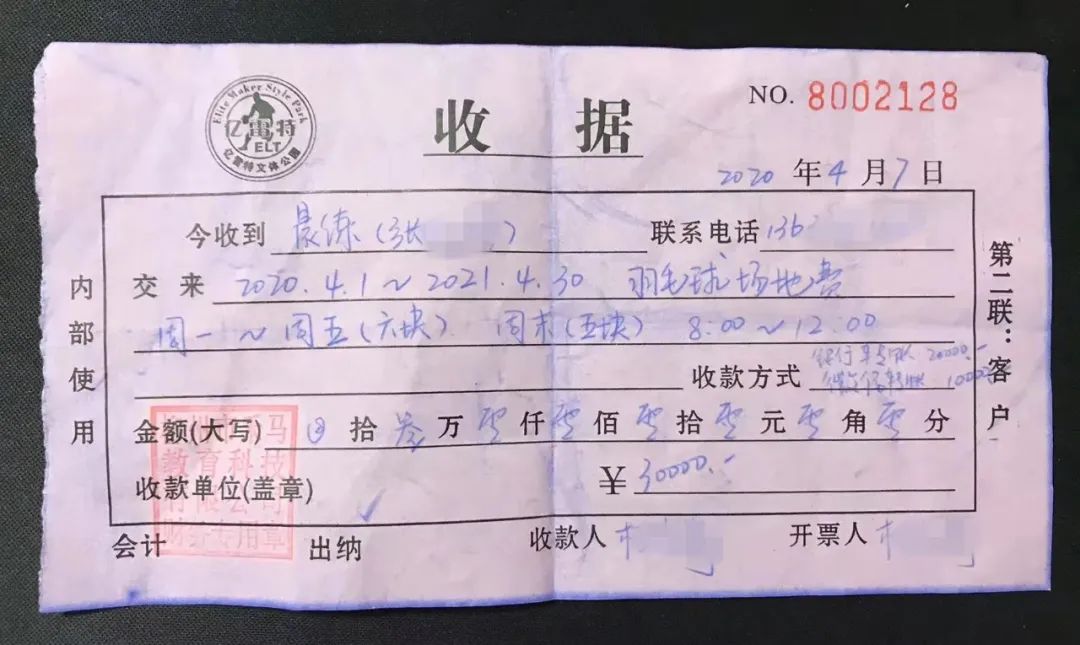 Elite Maker Style Park
亿雷特
ELT
亿雷特文体公园
收 据
NO. 8002128
2020 年 4 月 7 日
今收到 晨练(张 ) 联系电话 136
交来 2020.4.1～2021.4.30 羽毛球场地费
周一～周五(六块) 周末(五块) 8:00～12:00
收款方式 银行卡转账 20000.- 微信转账 10000.-
金额(大写) ⊗ 拾 叁 万 零 仟 零 佰 零 拾 零 元 零 角 零 分
¥ 30000.-
收款单位(盖章)
马
教育科技
有限公司
财务专用章
会计 出纳 收款人 开票人
内部使用
第二联：客户